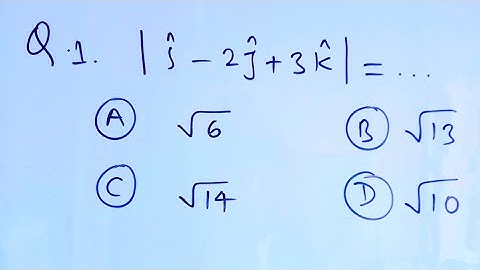 Q.1. |î − 2ĵ + 3k̂| = ...
(A) √6 (B) √13
(C) √14 (D) √10